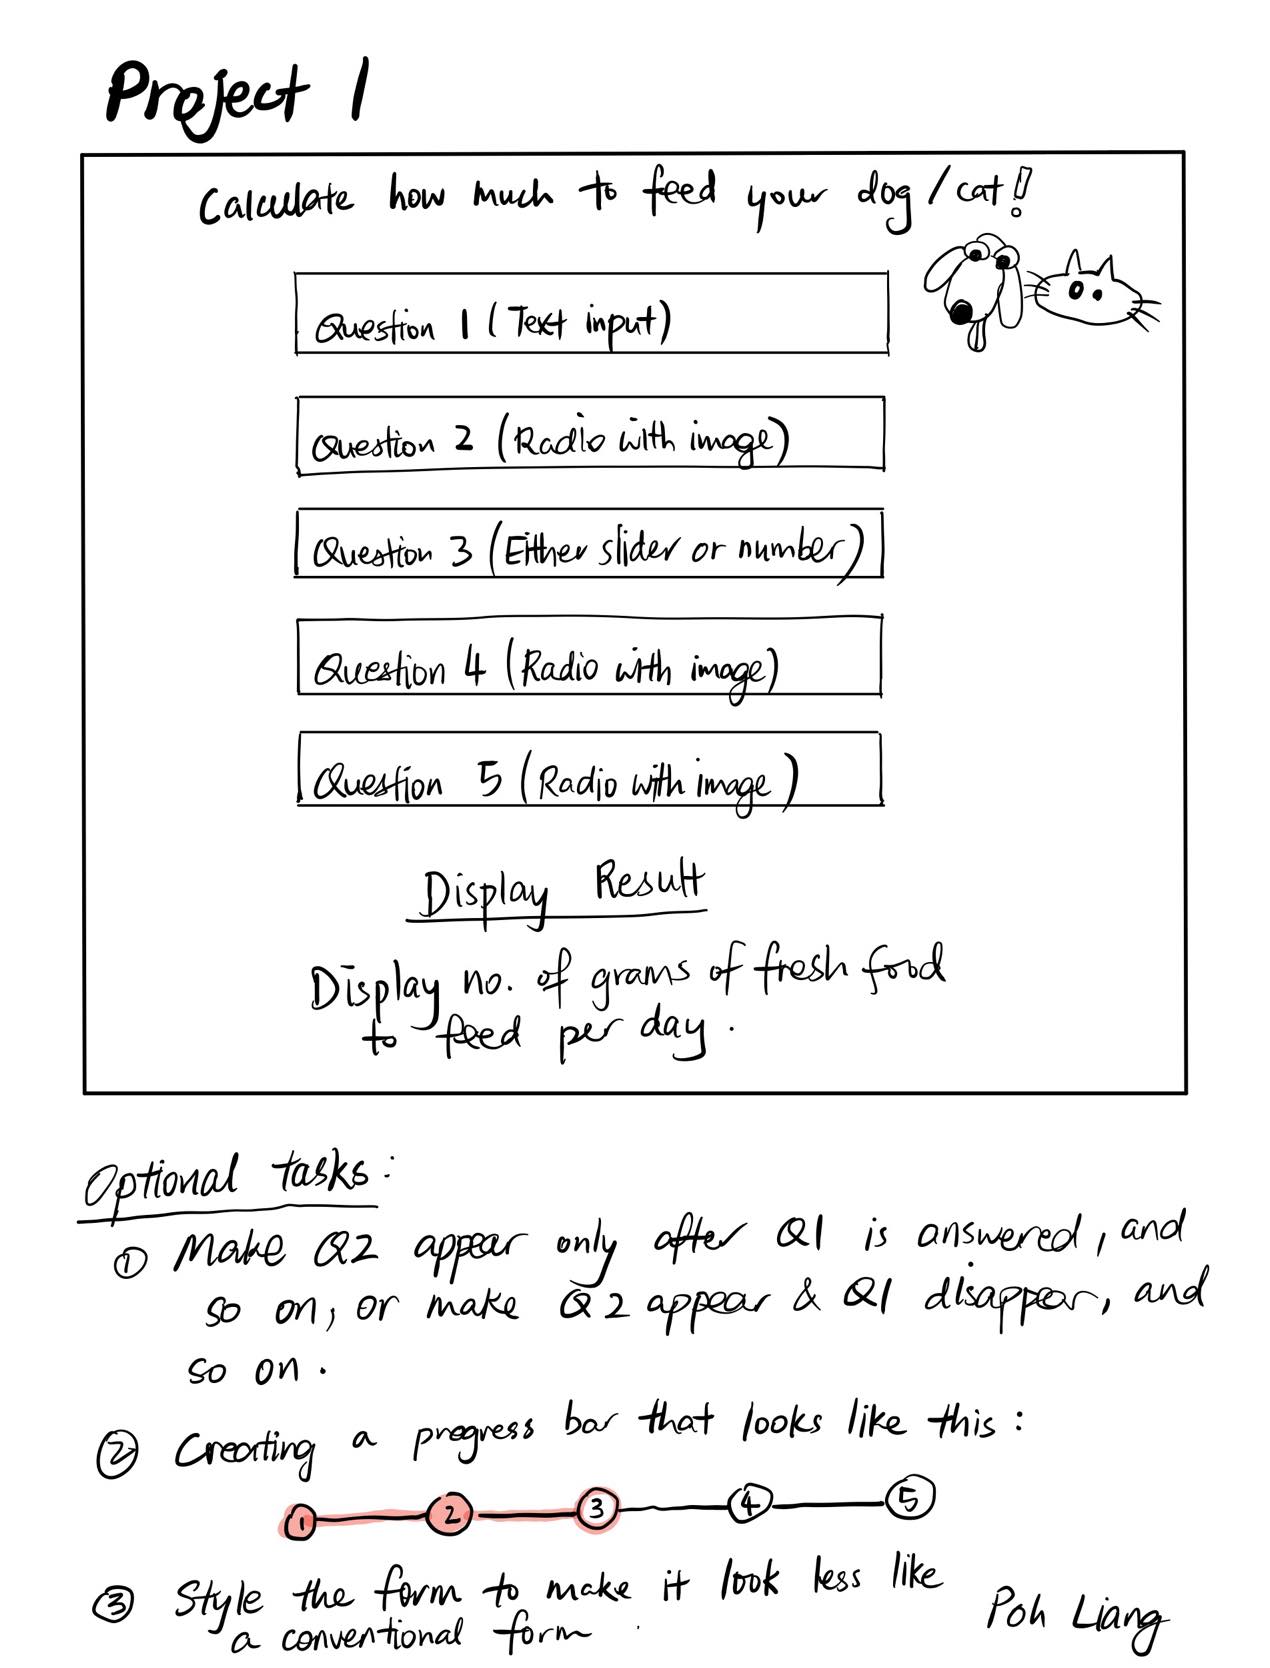 Project 1
Calculate how much to feed your dog/cat!
Question 1 (Text input)
Question 2 (Radio with image)
Question 3 (Either slider or number)
Question 4 (Radio with image)
Question 5 (Radio with image)
Display Result
Display no. of grams of fresh food
to feed per day.
Optional tasks:
① Make Q2 appear only after Q1 is answered, and
so on, or make Q2 appear & Q1 disappear, and
so on.
② Creating a progress bar that looks like this:
1 2 3 4 5
③ Style the form to make it look less like
a conventional form.
Poh Liang